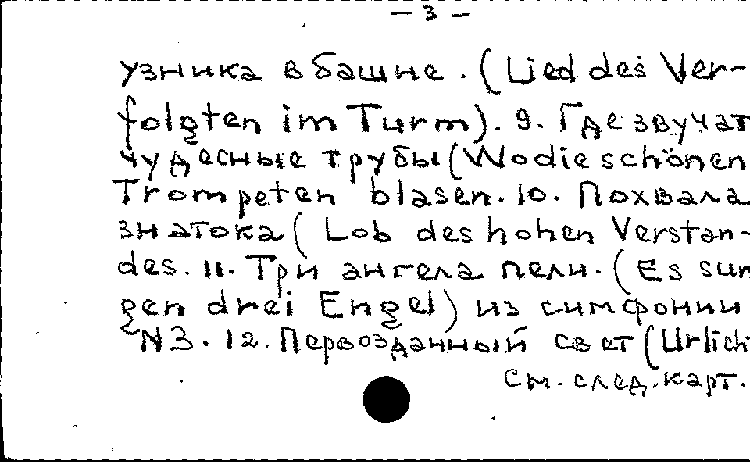 — 3 —
узника в башне. (Lied des Ver-
folgten im Turm). 9. Где звучат
чудесные трубы (Wo die schönen
Trompeten blasen. 10. Похвала
знатока ( Lob des hohen Verstan-
des. 11. Три ангела пели. (Es sun
gen drei Engel) из симфонии
N3. 12. Первозданный свет (Urlich
См. след. карт.